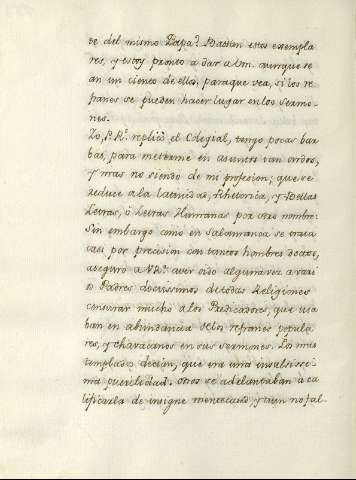 se del mismo Papa? Bastan estos exempla
res, y estoy pronto a dar a Vm. aunque se
an un ciento de ellos, paraque vea, si los re
franes se pueden hacer lugar en los sermo-
nes.
Yo, P. R.mo replicó el Colegial, tengo pocas bar
bas, para meterme en asuntos tan ondos,
y mas no siendo de mi profesion; que se
reduce a la latinidad, Rhetorica, y Bellas
Letras, ó Letras Humanas por otro nombre.
Sin embargo como en Salamanca se trata
casi por precision con tantos hombres doctos,
aseguro a V. R.ma aver oido alguna vez a vari
os Padres doctissimos de todas Religiones
censurar mucho a los Predicadores, que usa
ban en abundancia de los refranes popula
res, y chavacanos en sus sermones. Los mas
templados decian, que era una insulsissi-
ma puerilidad. otros se adelantaban à ca
lificarla de insigne mentecatéz y aun no fal-